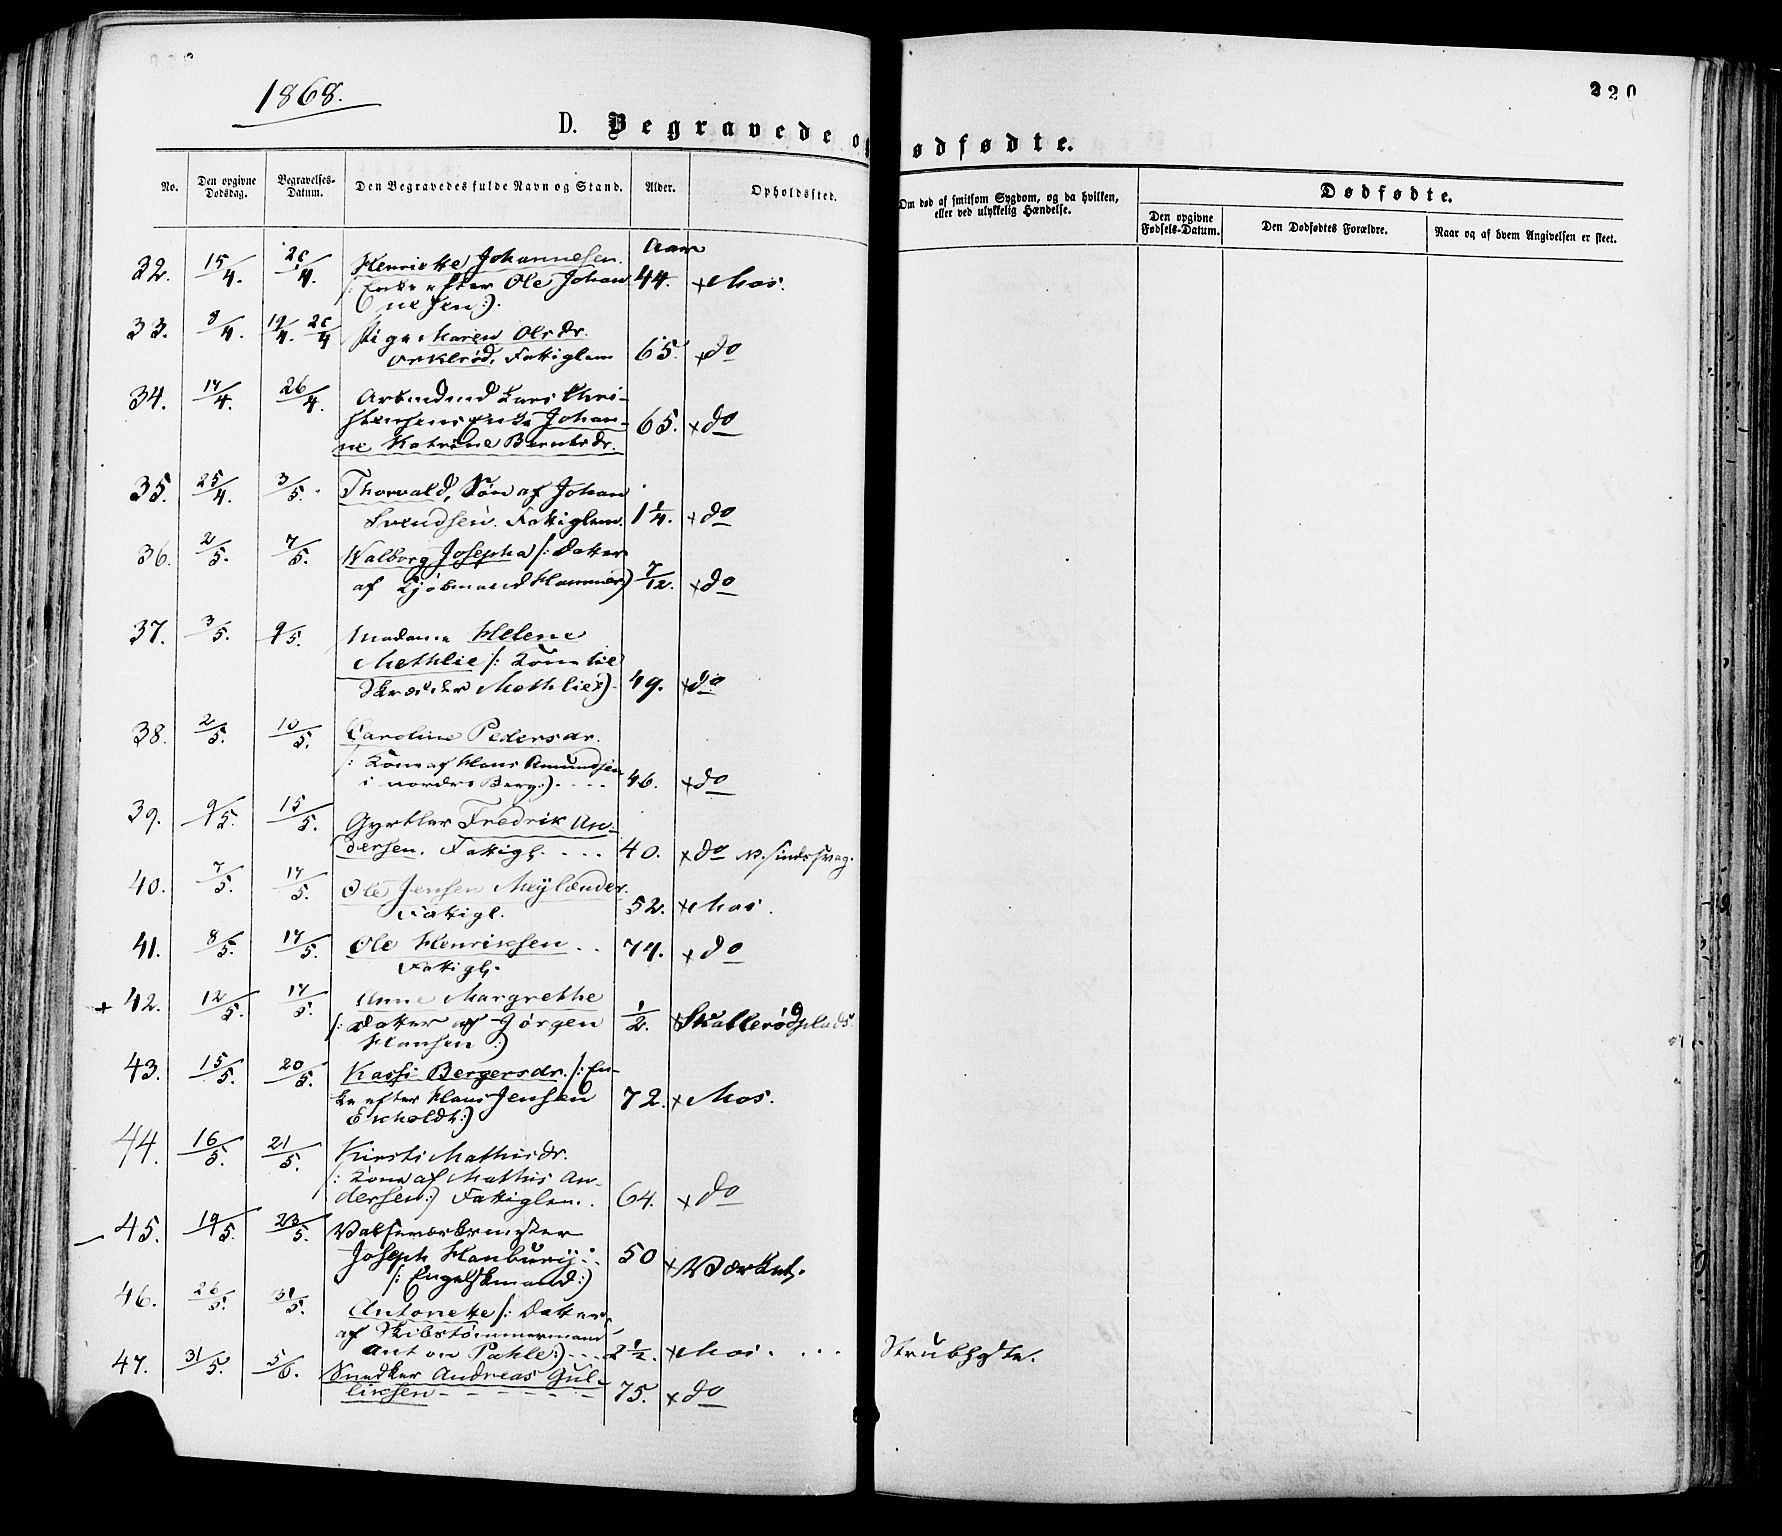 1868.
220
D. Begravede og Dødfødte.
No. Den opgivne Dødsdag. Begravelses-Datum. Den Begravedes fulde Navn og Stand. Alder. Opholdssted. Om død af smitsom Sygdom, og da hvilken, eller ved ulykkelig Hændelse. Dødfødte.
Den opgivne Fødsels-Datum. Den Dødfødtes Forældre. Naar og af hvem Angivelsen er skeet.
Aar
32. 15/4. 20/4. Henriette Johannesen.
/: Enke efter Ole Johan 44. + Mos.
nesen:).
33. 8/4. 19/4. 20/4 Pige Maren Olsdr.
Orkerød, Fattiglem 65. + do
34. 17/4. 26/4. Arbmdmd Lars Chri-
stensens Enke Johan- 65. + do
ne Katrine Berntsdr.
35. 25/4. 3/5. Thorvald, Søn af Johan
Svendsen. Fattiglem. 1 1/4. + do
36. 2/5. 7/5. Walborg Josepha /: Datter
af Kjøbmand Hammer) 7/12. + do
37. 3/5. 9/5. Madame Helene
Methlie /: Kone til
Skræder Methlie:). 49. + do
38. 2/5. 10/5. Caroline Pedersdr.
/: Kone af Hans Amundsen
i nordre Berg:). . . . 46. + do
39. 9/5. 15/5. Gyrtler Fredrik An-
dersen. Fattigl. . . . 40. + do NB. sindssvag.
40. 7/5. 17/5. Ole Jensen Meÿlænder.
Fattigl. 52. + Mos.
41. 8/5. 17/5. Ole Henriksen . . 74. + do
Fattigl.
+ 42. 12/5. 17/5. Anne Margrethe
/: Datter af Jørgen 1/2. + Skallerødplads.
Hansen:)
43. 15/5. 20/5. Kassi Bergersdr. /: En-
ke efter Hans Jensen 72. + Mos.
Ekholdt:)
44. 16/5. 21/5. Kirsti Mathisdr.
/: Kone af Mathis An-
dersen:) Fattiglem. 64. + do
— 45. 19/5. 23/5. Valseværkmester
Joseph Hanburÿ . . 50 + Værket.
/: Engelskmand:)
46. 26/5. 31/5. Antonette /: Datter
af Skibstømmermand
Anton Pahle:) . . . 2 1/2. + Mos. . . . Strubehoste.
47. 31/5. 5/6. Snedker Andreas Gul-
liksen - - - - - - 75. + do